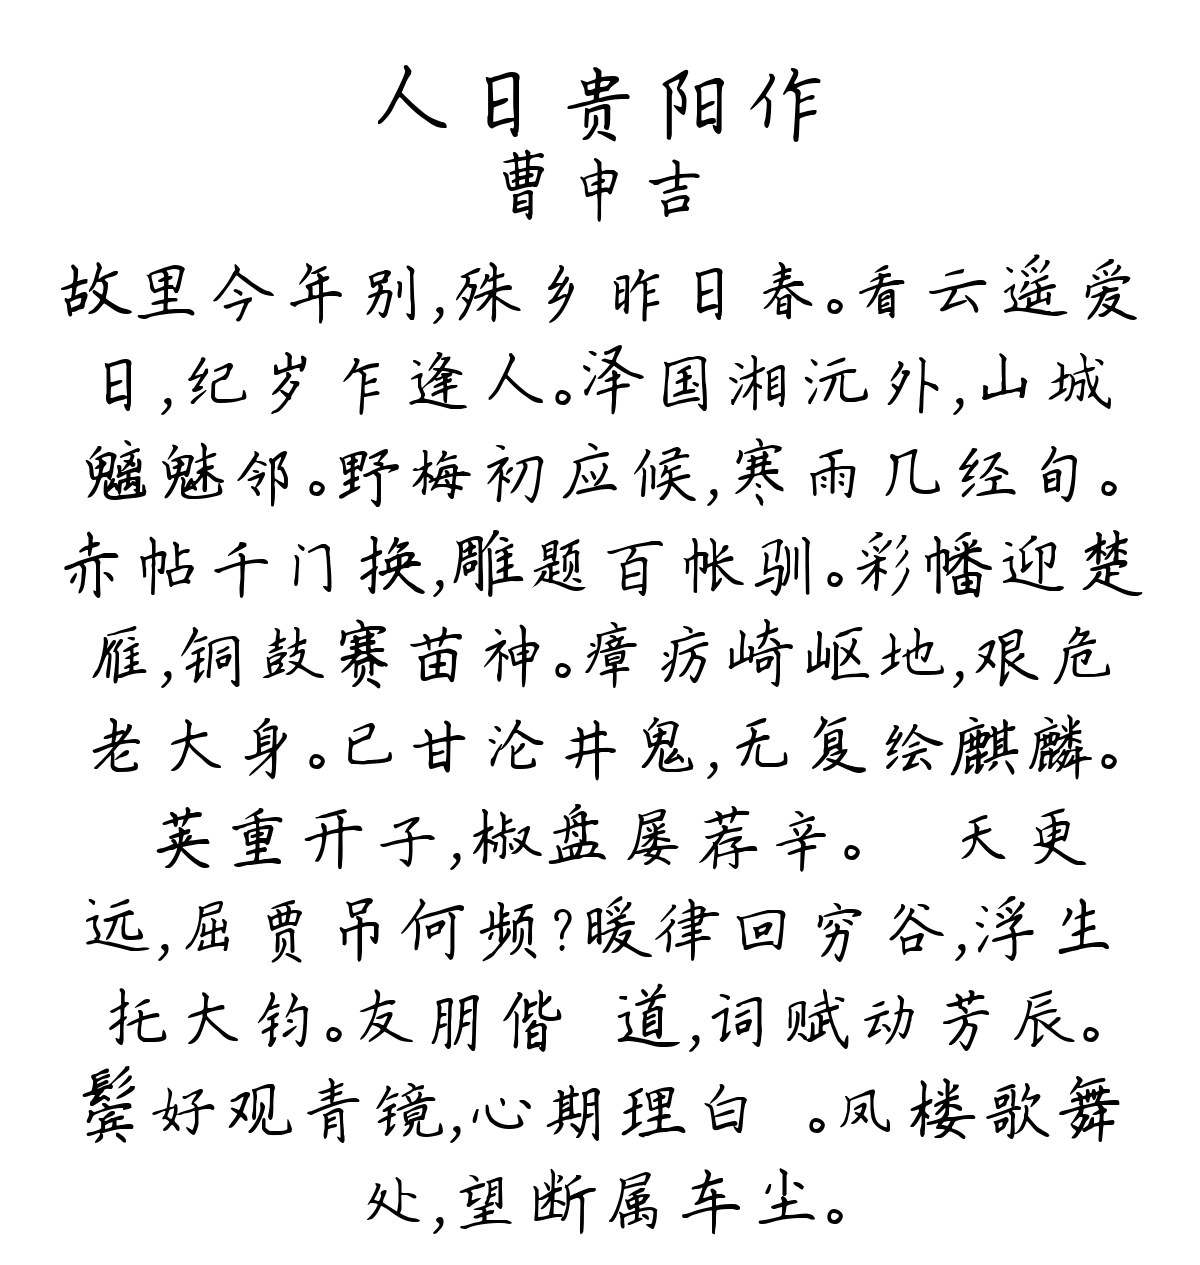 人日贵阳作
曹申吉
故里今年别,殊乡昨日春。看云遥爱
日,纪岁乍逢人。泽国湘沅外,山城
魑魅邻。野梅初应候,寒雨几经旬。
赤帖千门换,雕题百帐驯。彩幡迎楚
雁,铜鼓赛苗神。瘴疠崎岖地,艰危
老大身。已甘沦井鬼,无复绘麒麟。
荚重开子,椒盘屡荐辛。 天更
远,屈贾吊何频?暖律回穷谷,浮生
托大钧。友朋偕 道,词赋动芳辰。
鬓好观青镜,心期理白 。凤楼歌舞
处,望断属车尘。